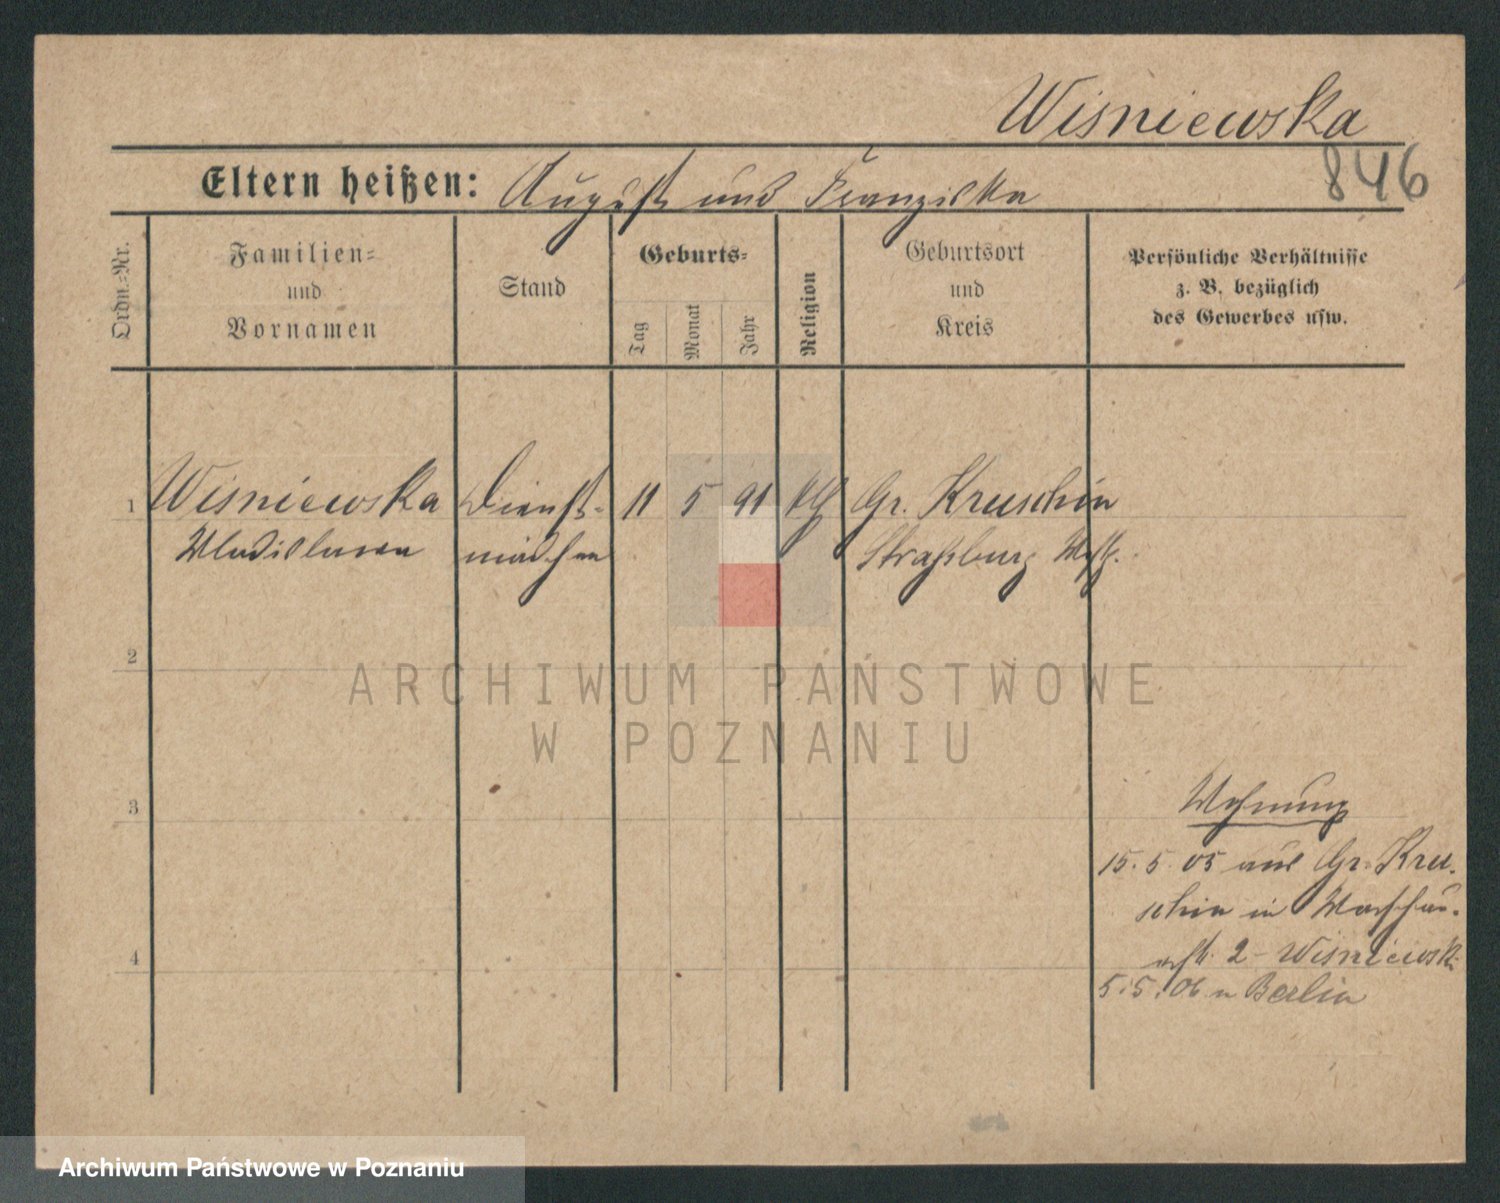 Wisniewska
846
Eltern heißen: August und Franziska
Ordn.-Nr.
Familien-
und
Vornamen
Stand
Geburts-
Tag
Monat
Jahr
Religion
Geburtsort
und
Kreis
Persönliche Verhältnisse
z. B. bezüglich
des Gewerbes usw.
1 Wisniewska Dienst- 11 5 91 kth Gr. Kruschin
Wladislawa mädchen Straßburg Wstp.
2
3
4
Wohnung
15. 5. 05 aus Gr. Kru-
schin in Warschau-
erstr. 2 - Wisniewski
5. 5. 06 n Berlin
ARCHIWUM PAŃSTWOWE
W POZNANIU
Archiwum Państwowe w Poznaniu